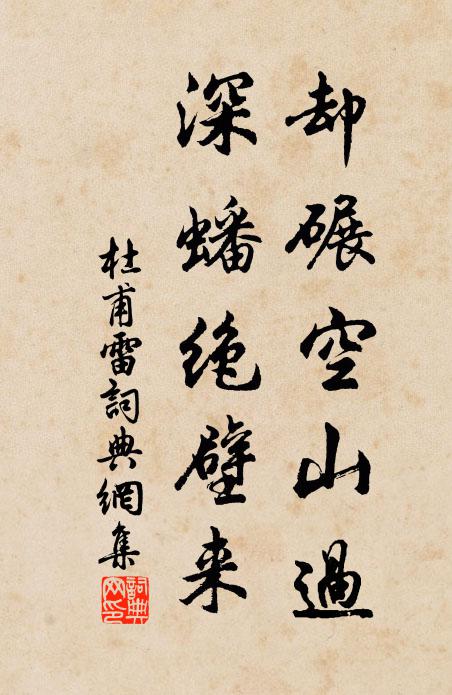 却碾空山過
深蟠绝壁来
杜甫雷詞典網集
詞典